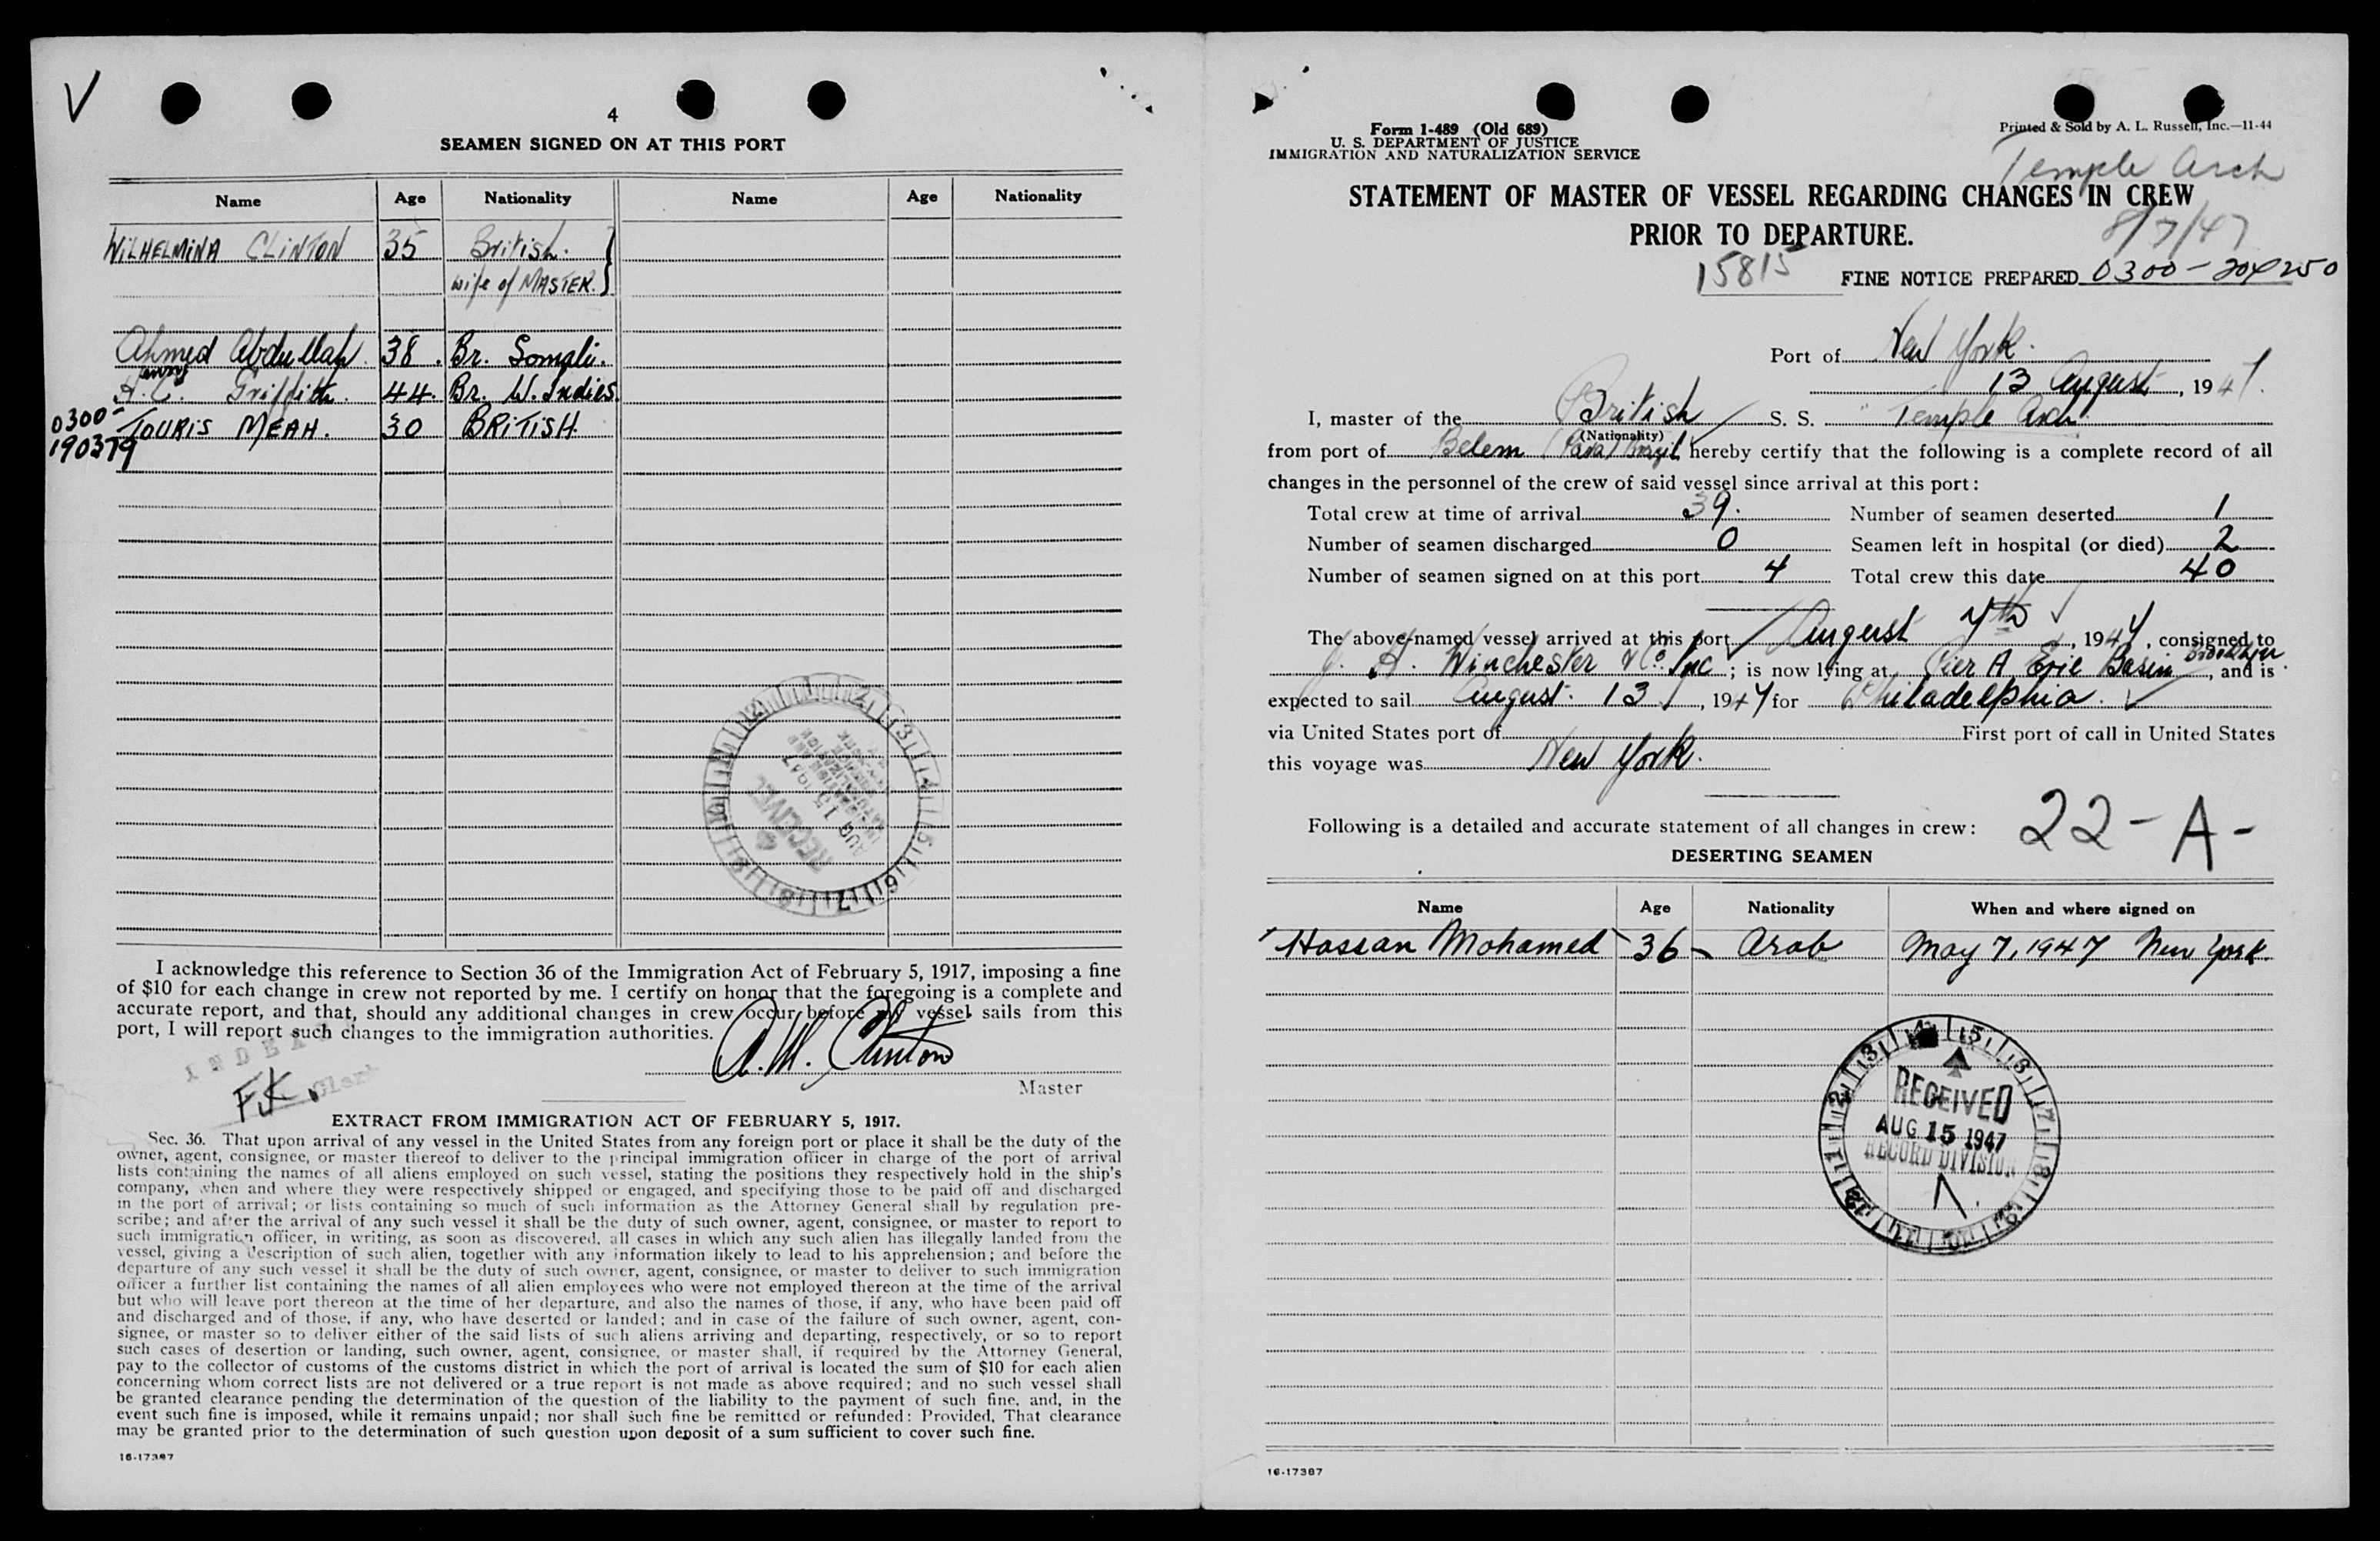 4
SEAMEN SIGNED ON AT THIS PORT
Name Age Nationality Name Age Nationality
WILHELMINA CLINTON 35 British.
wife of MASTER.
Ahmed Abdullah. 38. Br. Somali.
Henry
H. C. Griffith. 44. Br. W. Indies.
0300-
190379 TOURIS MEAH. 30 BRITISH.
RECEIVED
AUG 15 1947
I acknowledge this reference to Section 36 of the Immigration Act of February 5, 1917, imposing a fine
of $10 for each change in crew not reported by me. I certify on honor that the foregoing is a complete and
accurate report, and that, should any additional changes in crew occur before my vessel sails from this
port, I will report such changes to the immigration authorities.
A. M. Clinton
Master
F.K. Clerk
EXTRACT FROM IMMIGRATION ACT OF FEBRUARY 5, 1917.
Sec. 36. That upon arrival of any vessel in the United States from any foreign port or place it shall be the duty of the
owner, agent, consignee, or master thereof to deliver to the principal immigration officer in charge of the port of arrival
lists containing the names of all aliens employed on such vessel, stating the positions they respectively hold in the ship's
company, when and where they were respectively shipped or engaged, and specifying those to be paid off and discharged
in the port of arrival; or lists containing so much of such information as the Attorney General shall by regulation pre-
scribe; and after the arrival of any such vessel it shall be the duty of such owner, agent, consignee, or master to report to
such immigration officer, in writing, as soon as discovered, all cases in which any such alien has illegally landed from the
vessel, giving a description of such alien, together with any information likely to lead to his apprehension; and before the
departure of any such vessel it shall be the duty of such owner, agent, consignee, or master to deliver to such immigration
officer a further list containing the names of all alien employees who were not employed thereon at the time of the arrival
but who will leave port thereon at the time of her departure, and also the names of those, if any, who have been paid off
and discharged and of those, if any, who have deserted or landed; and in case of the failure of such owner, agent, con-
signee, or master so to deliver either of the said lists of such aliens arriving and departing, respectively, or so to report
such cases of desertion or landing, such owner, agent, consignee, or master shall, if required by the Attorney General,
pay to the collector of customs of the customs district in which the port of arrival is located the sum of $10 for each alien
concerning whom correct lists are not delivered or a true report is not made as above required; and no such vessel shall
be granted clearance pending the determination of the question of the liability to the payment of such fine, and, in the
event such fine is imposed, while it remains unpaid; nor shall such fine be remitted or refunded: Provided, That clearance
may be granted prior to the determination of such question upon deposit of a sum sufficient to cover such fine.
16-17387
Form I-489 (Old 689)
U. S. DEPARTMENT OF JUSTICE
IMMIGRATION AND NATURALIZATION SERVICE
Printed & Sold by A. L. Russell, Inc.—11-44
Temple Arch
STATEMENT OF MASTER OF VESSEL REGARDING CHANGES IN CREW
PRIOR TO DEPARTURE.
8/7/47
15815 FINE NOTICE PREPARED 0300-204250
Port of New York.
13 August, 1947.
I, master of the British S. S. "Temple Arch"
(Nationality)
from port of Belem (Para) Brazil, hereby certify that the following is a complete record of all
changes in the personnel of the crew of said vessel since arrival at this port:
Total crew at time of arrival 39. Number of seamen deserted 1
Number of seamen discharged 0 Seamen left in hospital (or died) 2
Number of seamen signed on at this port 4 Total crew this date 40
The above-named vessel arrived at this port August 7th, 1947, consigned to
J. H. Winchester & Co. Inc; is now lying at Pier A Erie Basin Brooklyn, and is
expected to sail August 13, 1947 for Philadelphia.
via United States port of First port of call in United States
this voyage was New York.
22-A-
Following is a detailed and accurate statement of all changes in crew:
DESERTING SEAMEN
Name Age Nationality When and where signed on
Hassan Mohamed 36 Arab May 7, 1947 New York
RECEIVED
AUG 15 1947
RECORD DIVISION
16-17387